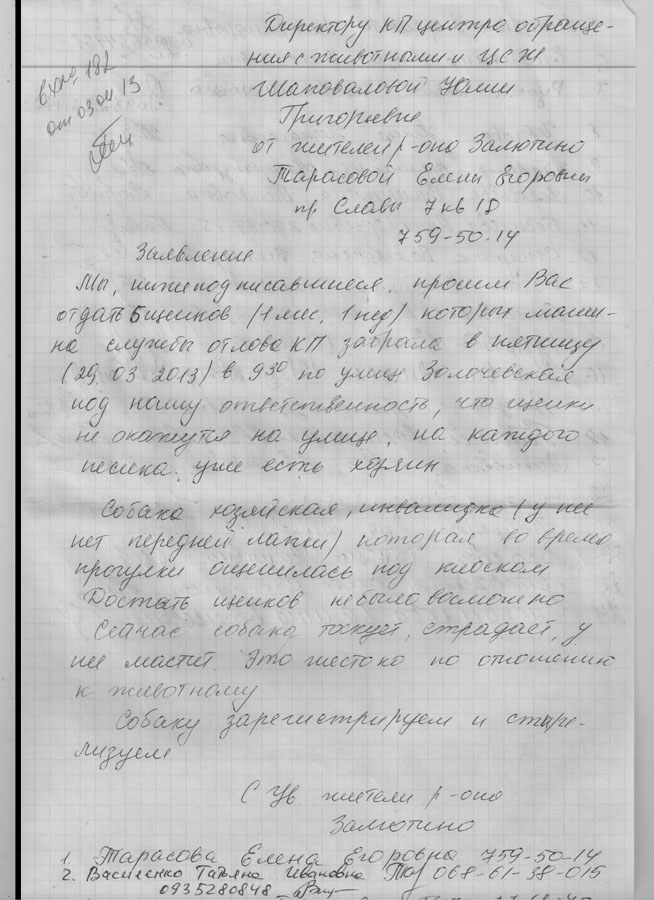 Директору КП центра обраще-
ния с животными и ЦСЖ
Шаповаловой Юлии
Григорьевне
от жителей р-она Залютино
Тарасовой Елены Егоровны
пр. Славы 7 кв 18
759-50-14
вход. 182
от 03.04 13
Заявление
Мы, нижеподписавшиеся, просим Вас
отдать 5 щенков (1 мес, 1 нед) которых маши-
на службы отлова КП забрала в пятницу
(29.03 2013) в 9 30 по улице Золочевская
под нашу ответственность, что щенки
не окажутся на улице, на каждого
песика уже есть хозяин
Собака хозяйская, инвалидка (у нее
нет передней лапки) которая во время
прогулки ощенилась под киоском
Достать щенков не было возможно
Сейчас собака тоскует, страдает, у
нее мастит. Это жестоко по отношению
к животному
Собаку зарегистрируем и стере-
лизуем
С Ув. жители р-она
Залютино
1. Тарасова Елена Егоровна 759-50-14
2. Василенко Татьяна Ивановна 068-61-38-015
0935280848